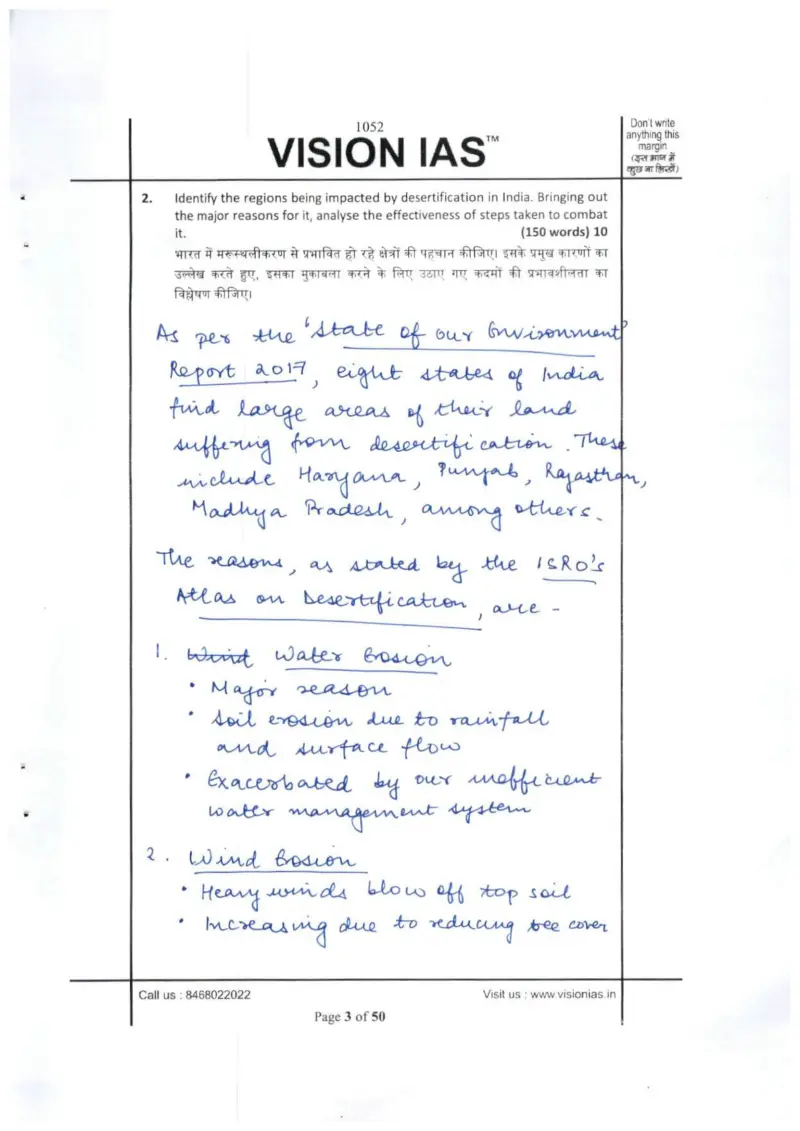 1052
VISION IAS™
Don't write
anything this
margin
(इस भाग में
कुछ ना लिखें)
2. Identify the regions being impacted by desertification in India. Bringing out
the major reasons for it, analyse the effectiveness of steps taken to combat
it. (150 words) 10
भारत में मरूस्थलीकरण से प्रभावित हो रहे क्षेत्रों की पहचान कीजिए। इसके प्रमुख कारणों का
उल्लेख करते हुए, इसका मुकाबला करने के लिए उठाए गए कदमों की प्रभावशीलता का
विश्लेषण कीजिए।
As per the 'State of our Environment'
Report 2017, eight states of India
find large areas of their land
suffering from desertification. These
include Haryana, Punjab, Rajasthan,
Madhya Pradesh, among others.
The reasons, as stated by the ISRO's
Atlas on Desertification, are -
1. Wind Water Erosion
• Major reason
• Soil erosion due to rainfall
and surface flow
• Exacerbated by our inefficient
water management system
2. Wind Erosion
• Heavy winds blow off top soil
• Increasing due to reducing tree cover
Call us : 8468022022
Visit us : www.visionias.in
Page 3 of 50